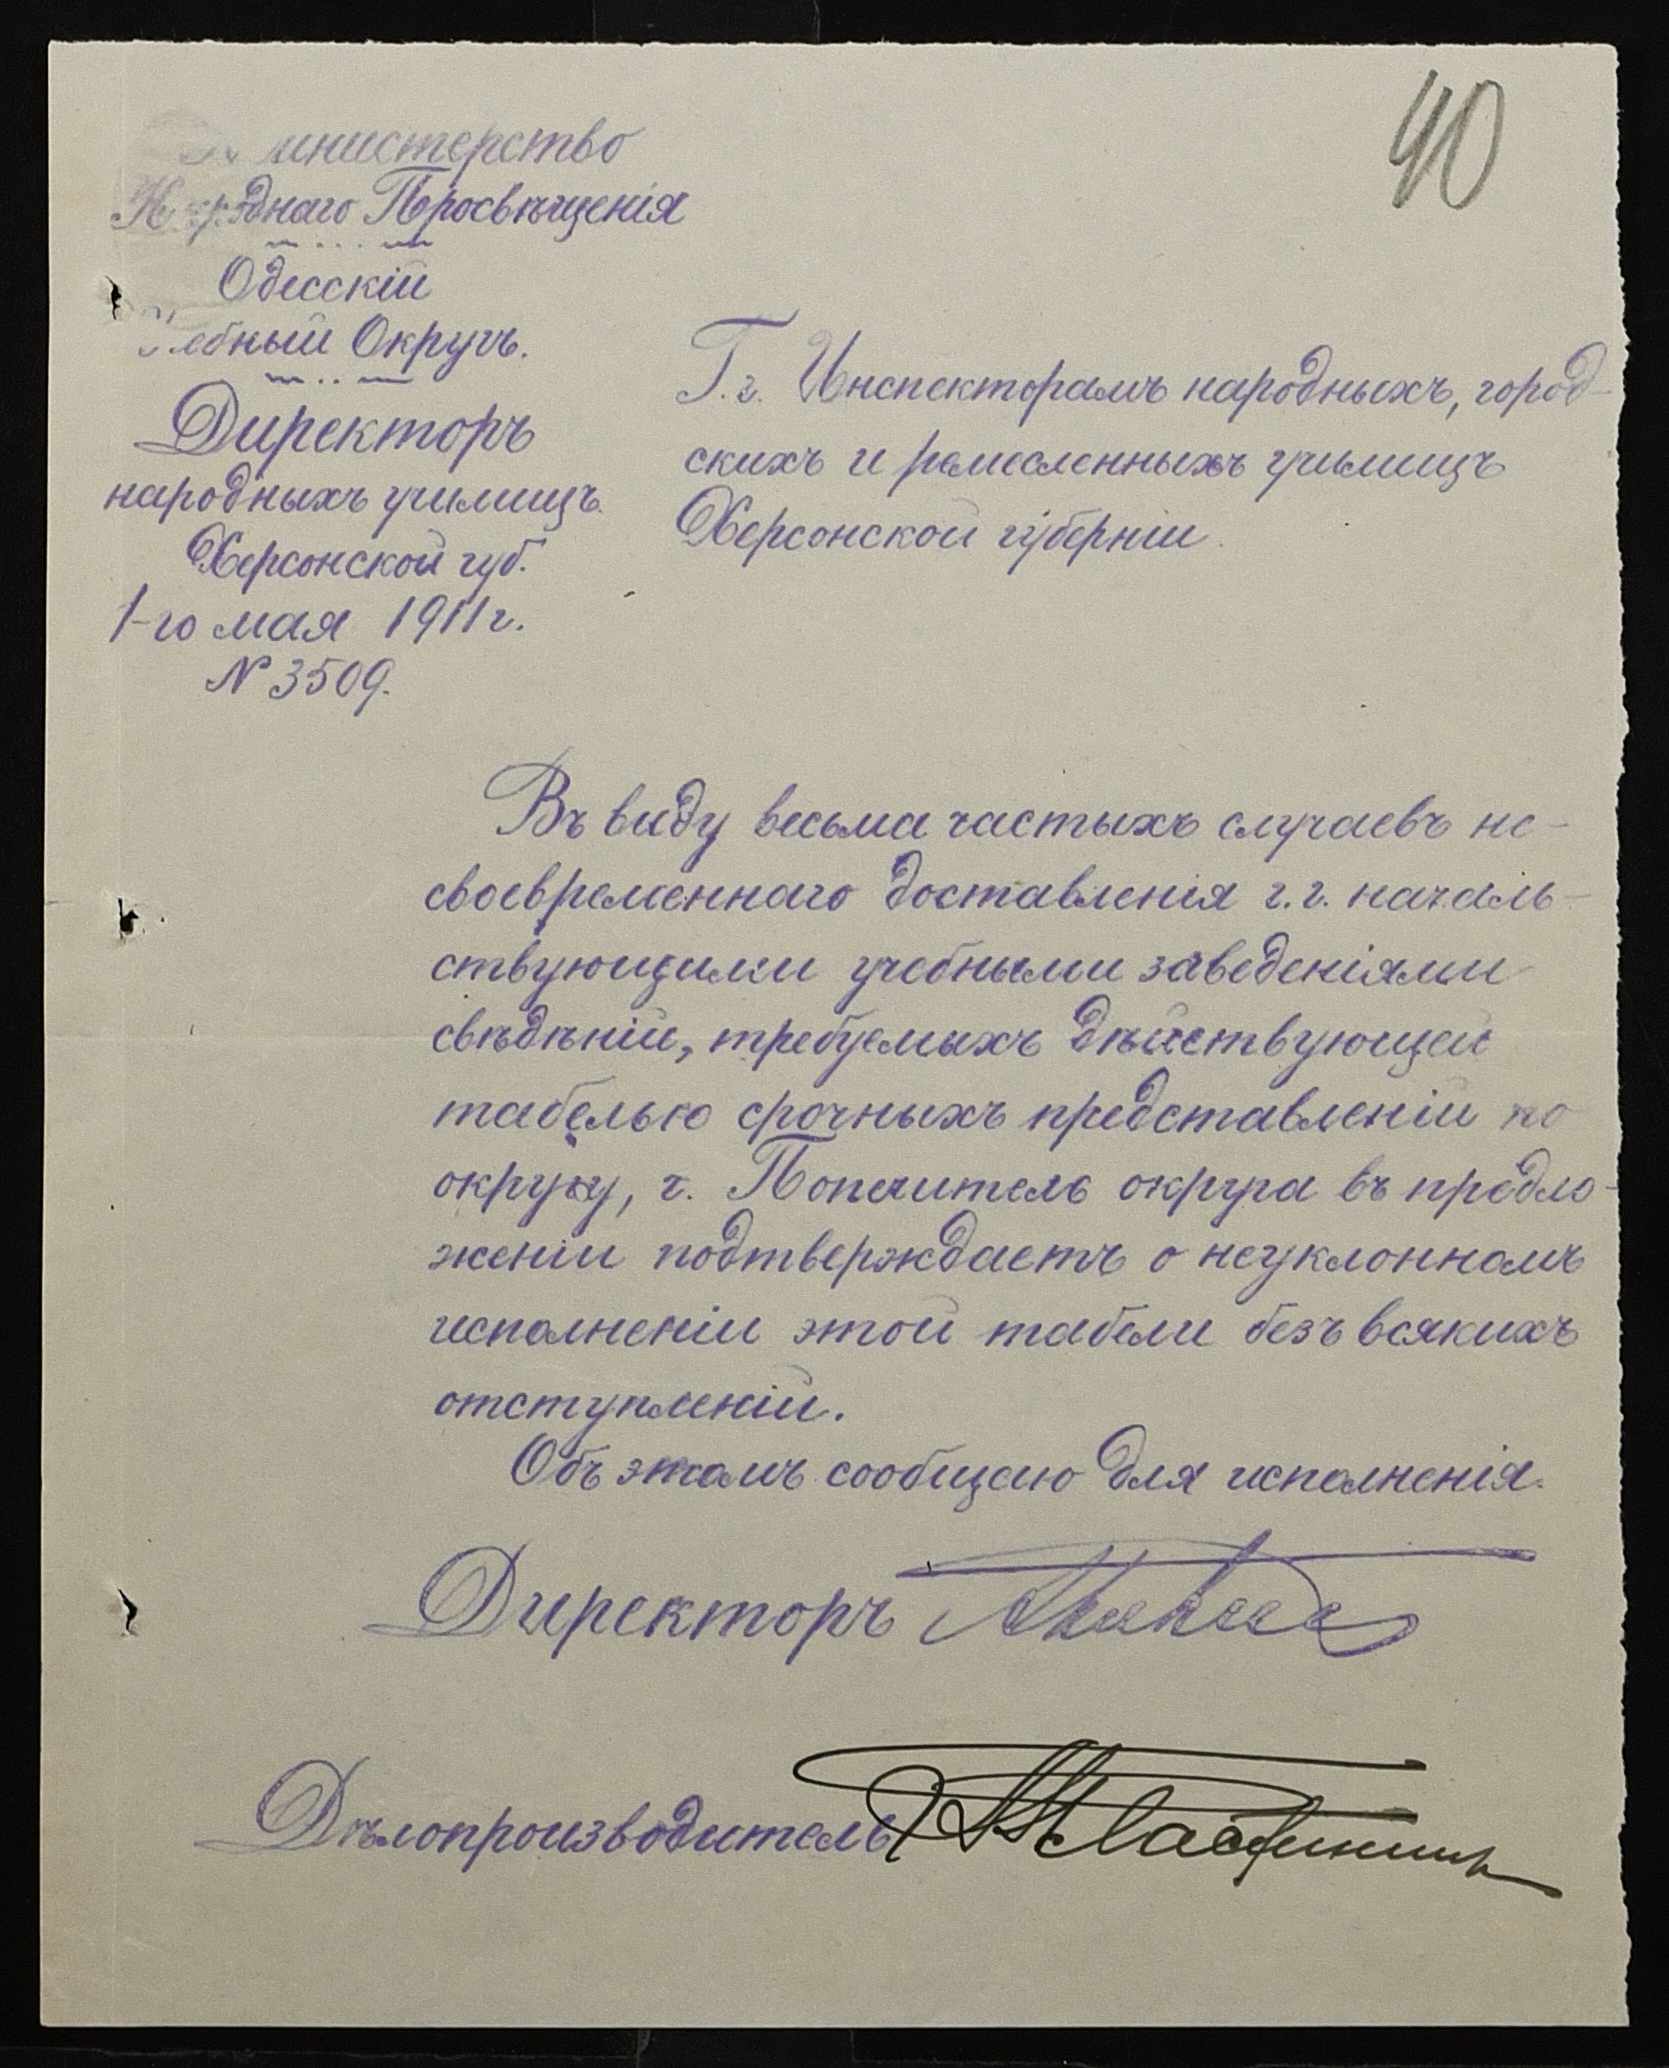 40
Министерство
Народнаго Просвѣщенія
Одесскій
Учебный Округъ.
Директоръ
народныхъ училищъ
Херсонской губ.
1-го мая 1911 г.
№ 3509.
Г.г. Инспекторамъ народныхъ, город-
скихъ и ремесленныхъ училищъ
Херсонской губерніи.
Въ виду весьма частыхъ случаевъ не-
своевременнаго доставленія г.г. началь-
ствующими учебными заведеніями
свѣдѣній, требуемыхъ дѣйствующей
табелью срочныхъ представленій по
округу, г. Попечитель округа въ предло-
женіи подтверждаетъ о неуклонномъ
исполненіи этой табели безъ всякихъ
отступленій.
Объ этомъ сообщаю для исполненія.
Директоръ
Дѣлопроизводитель